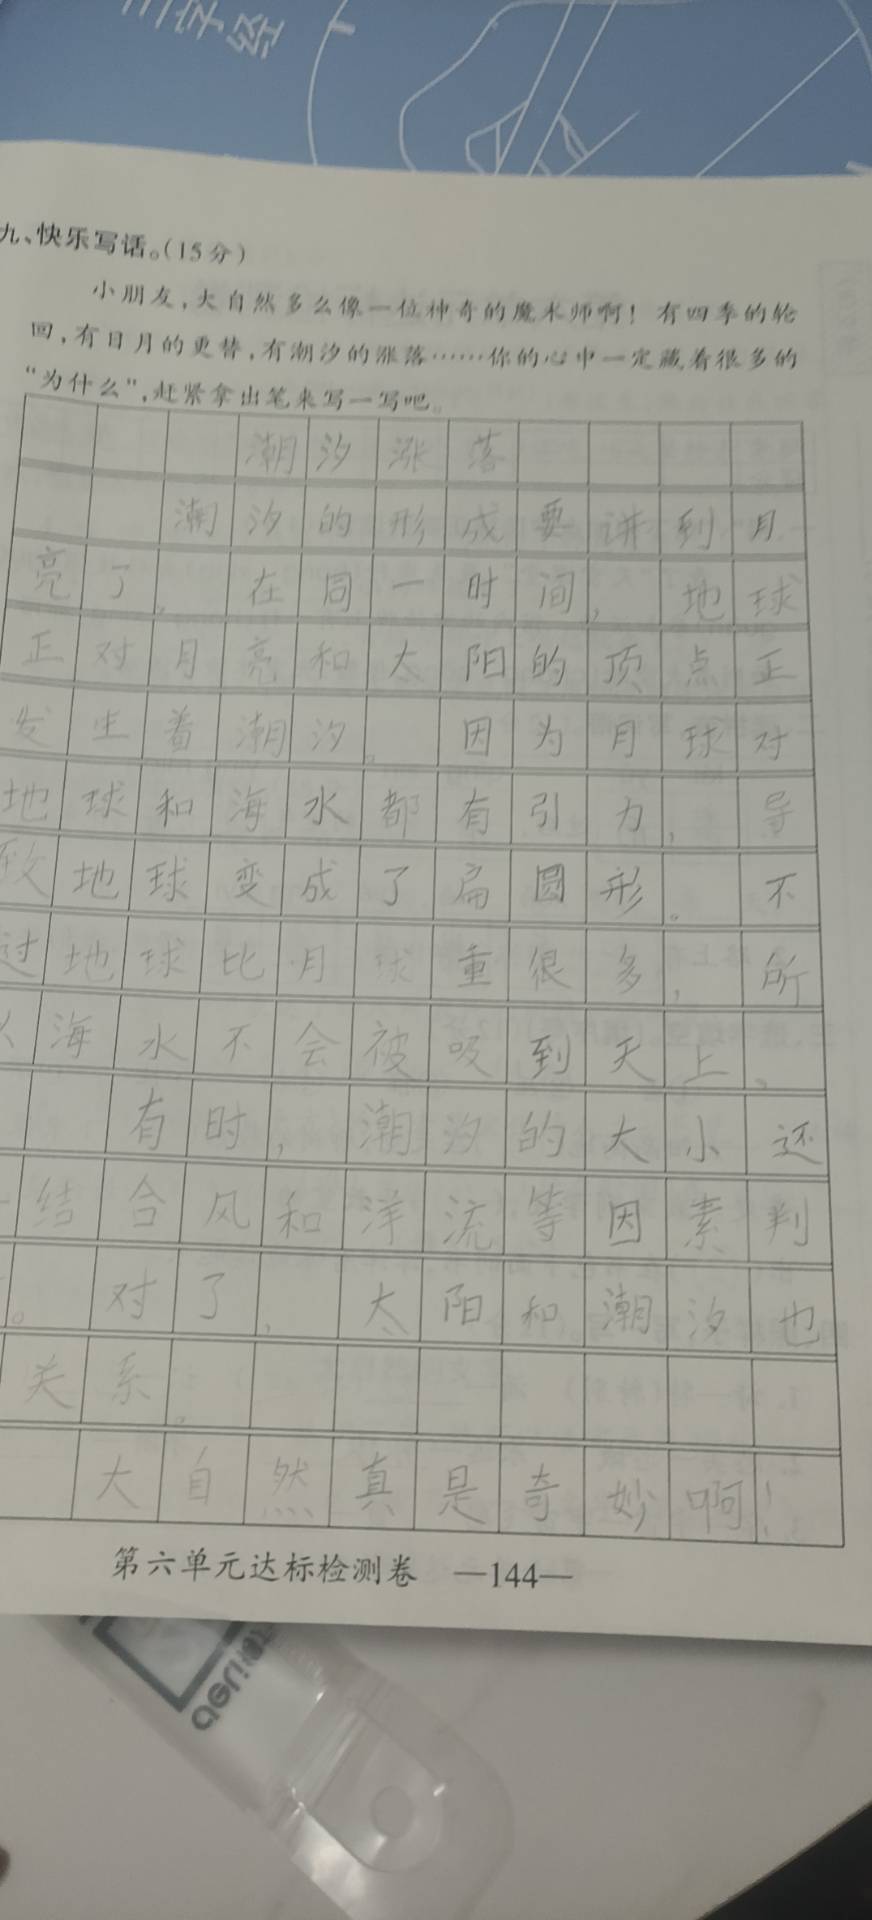 三字经
九、快乐写话。(15分)
小朋友,大自然多么像一位神奇的魔术师啊!有四季的轮
回,有日月的更替,有潮汐的涨落……你的心中一定藏着很多的
“为什么”,赶紧拿出笔来写一写吧。
潮汐涨落
潮汐的形成要讲到月
亮了,在同一时间,地球
正对月亮和太阳的顶点正
发生着潮汐。因为月球对
地球和海水都有引力,导
致地球变成了扁圆形。不
过地球比月球重很多,所
以海水不会被吸到天上、
有时,潮汐的大小还
结合风和洋流等因素判
。对了,太阳和潮汐也
关系。
大自然真是奇妙啊!
第六单元达标检测卷 —144—
deli